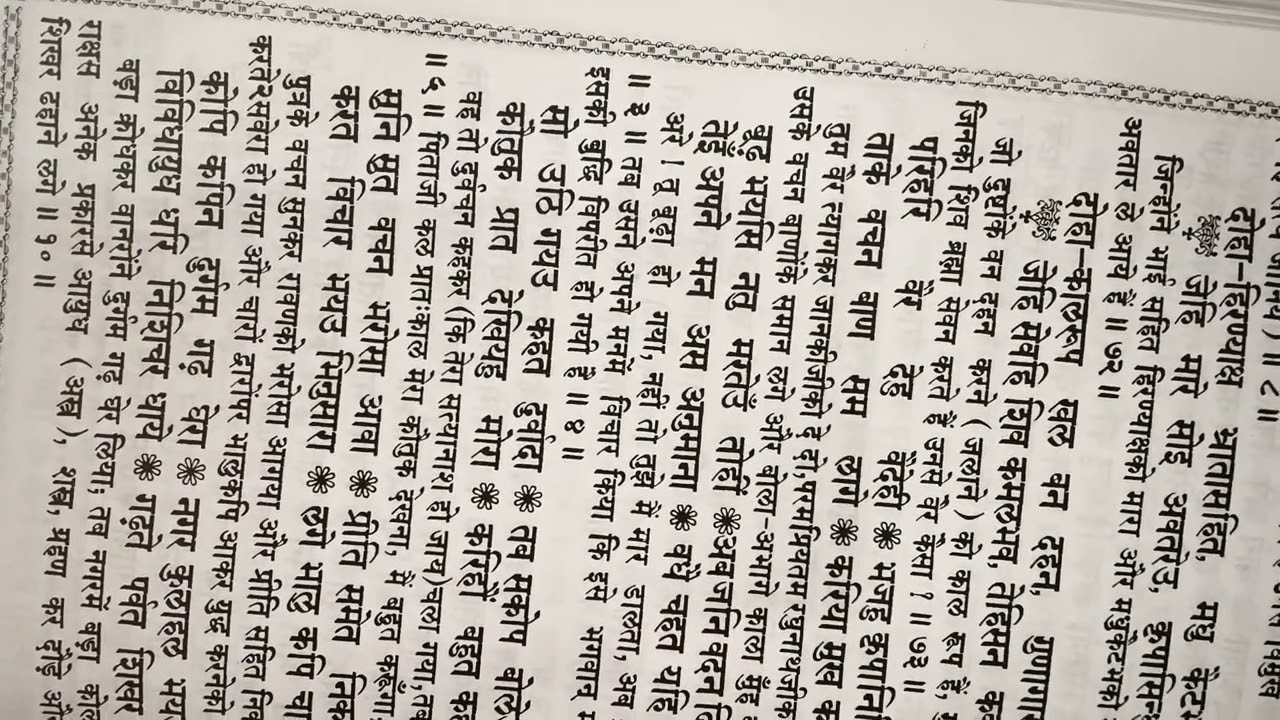 दोहा-हिरण्याक्ष भ्रातासहित, मधु कैट
जेहि मारे सोइ अवतरेउ, कृपासिन्
जिन्होंने भाई सहित हिरण्याक्षको मारा और मधुकैटभको
अवतार ले आये हैं ॥ ७२ ॥
दोहा-कालरूप खल वन दहन, गुणागा
जेहि सेवहिं शिव कमलभव, तेहिसन क
जो दुष्टोंके वन दहन करने ( जलाने ) को काल रूप हैं,
जिनको शिव ब्रह्मा सेवन करते हैं उनसे वैर कैसा ? ॥ ७३ ॥
परिहरि वैर देहु वैदेही ❋ भजहु कृपानि
ताके वचन बाण सम लागे ❋ करिया मुख क
तुम वैर त्यागकर जानकीजीको दे दो,परमप्रियतम रघुनाथजीक
उसके वचन बाणोंके समान लगे और बोला-अभागे काला मुँह
बूढ़ भयसि नतु मरतेउँ तोहीं ❋अब जनि वदन
तेइँ अपने मन अस अनुमाना ❋ वध्यै चहत यहि
अरे ! तू बूढ़ा हो गया, नहीं तो तुझे मैं मार डालता, अब
॥ ३ ॥ तब उसने अपने मनमें विचार किया कि इसे भगवान्
इसकी बुद्धि विपरीत हो गयी है ॥ ४ ॥
सो उठि गयउ कहत दुर्वादा ❋ तब सकोप बोले
कौतुक प्रात देखियहु मोरा ❋ करिहौं बहुत क
वह तो दुर्वचन कहकर (कि तेरा सत्यानाश हो जाय)चला गया,तब
॥ ५ ॥ पिताजी कल प्रातःकाल मेरा कौतुक देखना, मैं बहुत करूँगा
सुनि सुत वचन भरोसा आवा ❋ प्रीति समेत निक
करत विचार भयउ भिनुसारा ❋ लगे भालु कपि चा
पुत्रके वचन सुनकर रावणको भरोसा आगया और प्रीति सहित निक
करतेरेसबेरा हो गया और चारों द्वारोंपर भालुकपि आकर युद्ध करनेको
कोपि कपिन दुर्गम गढ़ घेरा ❋ नगर कुलाहल भय
विविधायुध धरि निशिचर धाये ❋ गढ़ते पर्वत शिखर
बड़ा क्रोधकर वानरोंने दुर्गम गढ़ घेर लिया; तब नगरमें बड़ा कोल
राक्षस अनेक प्रकारसे आयुध ( अस्त्र ), शस्त्र, ग्रहण कर दौड़े और
शिखर ढहाने लगे ॥ १० ॥